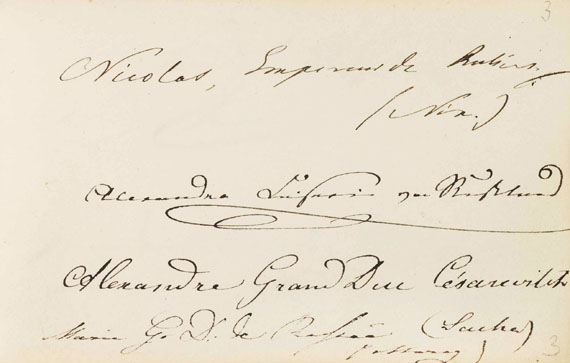 3
Nicolas, Empereur de Russie,
(Nix.)
Alexandra Kaiserin von Rußland
Alexandre Grand Duc Césarewitch
Marie G. D. de Russie (Sacha)
3